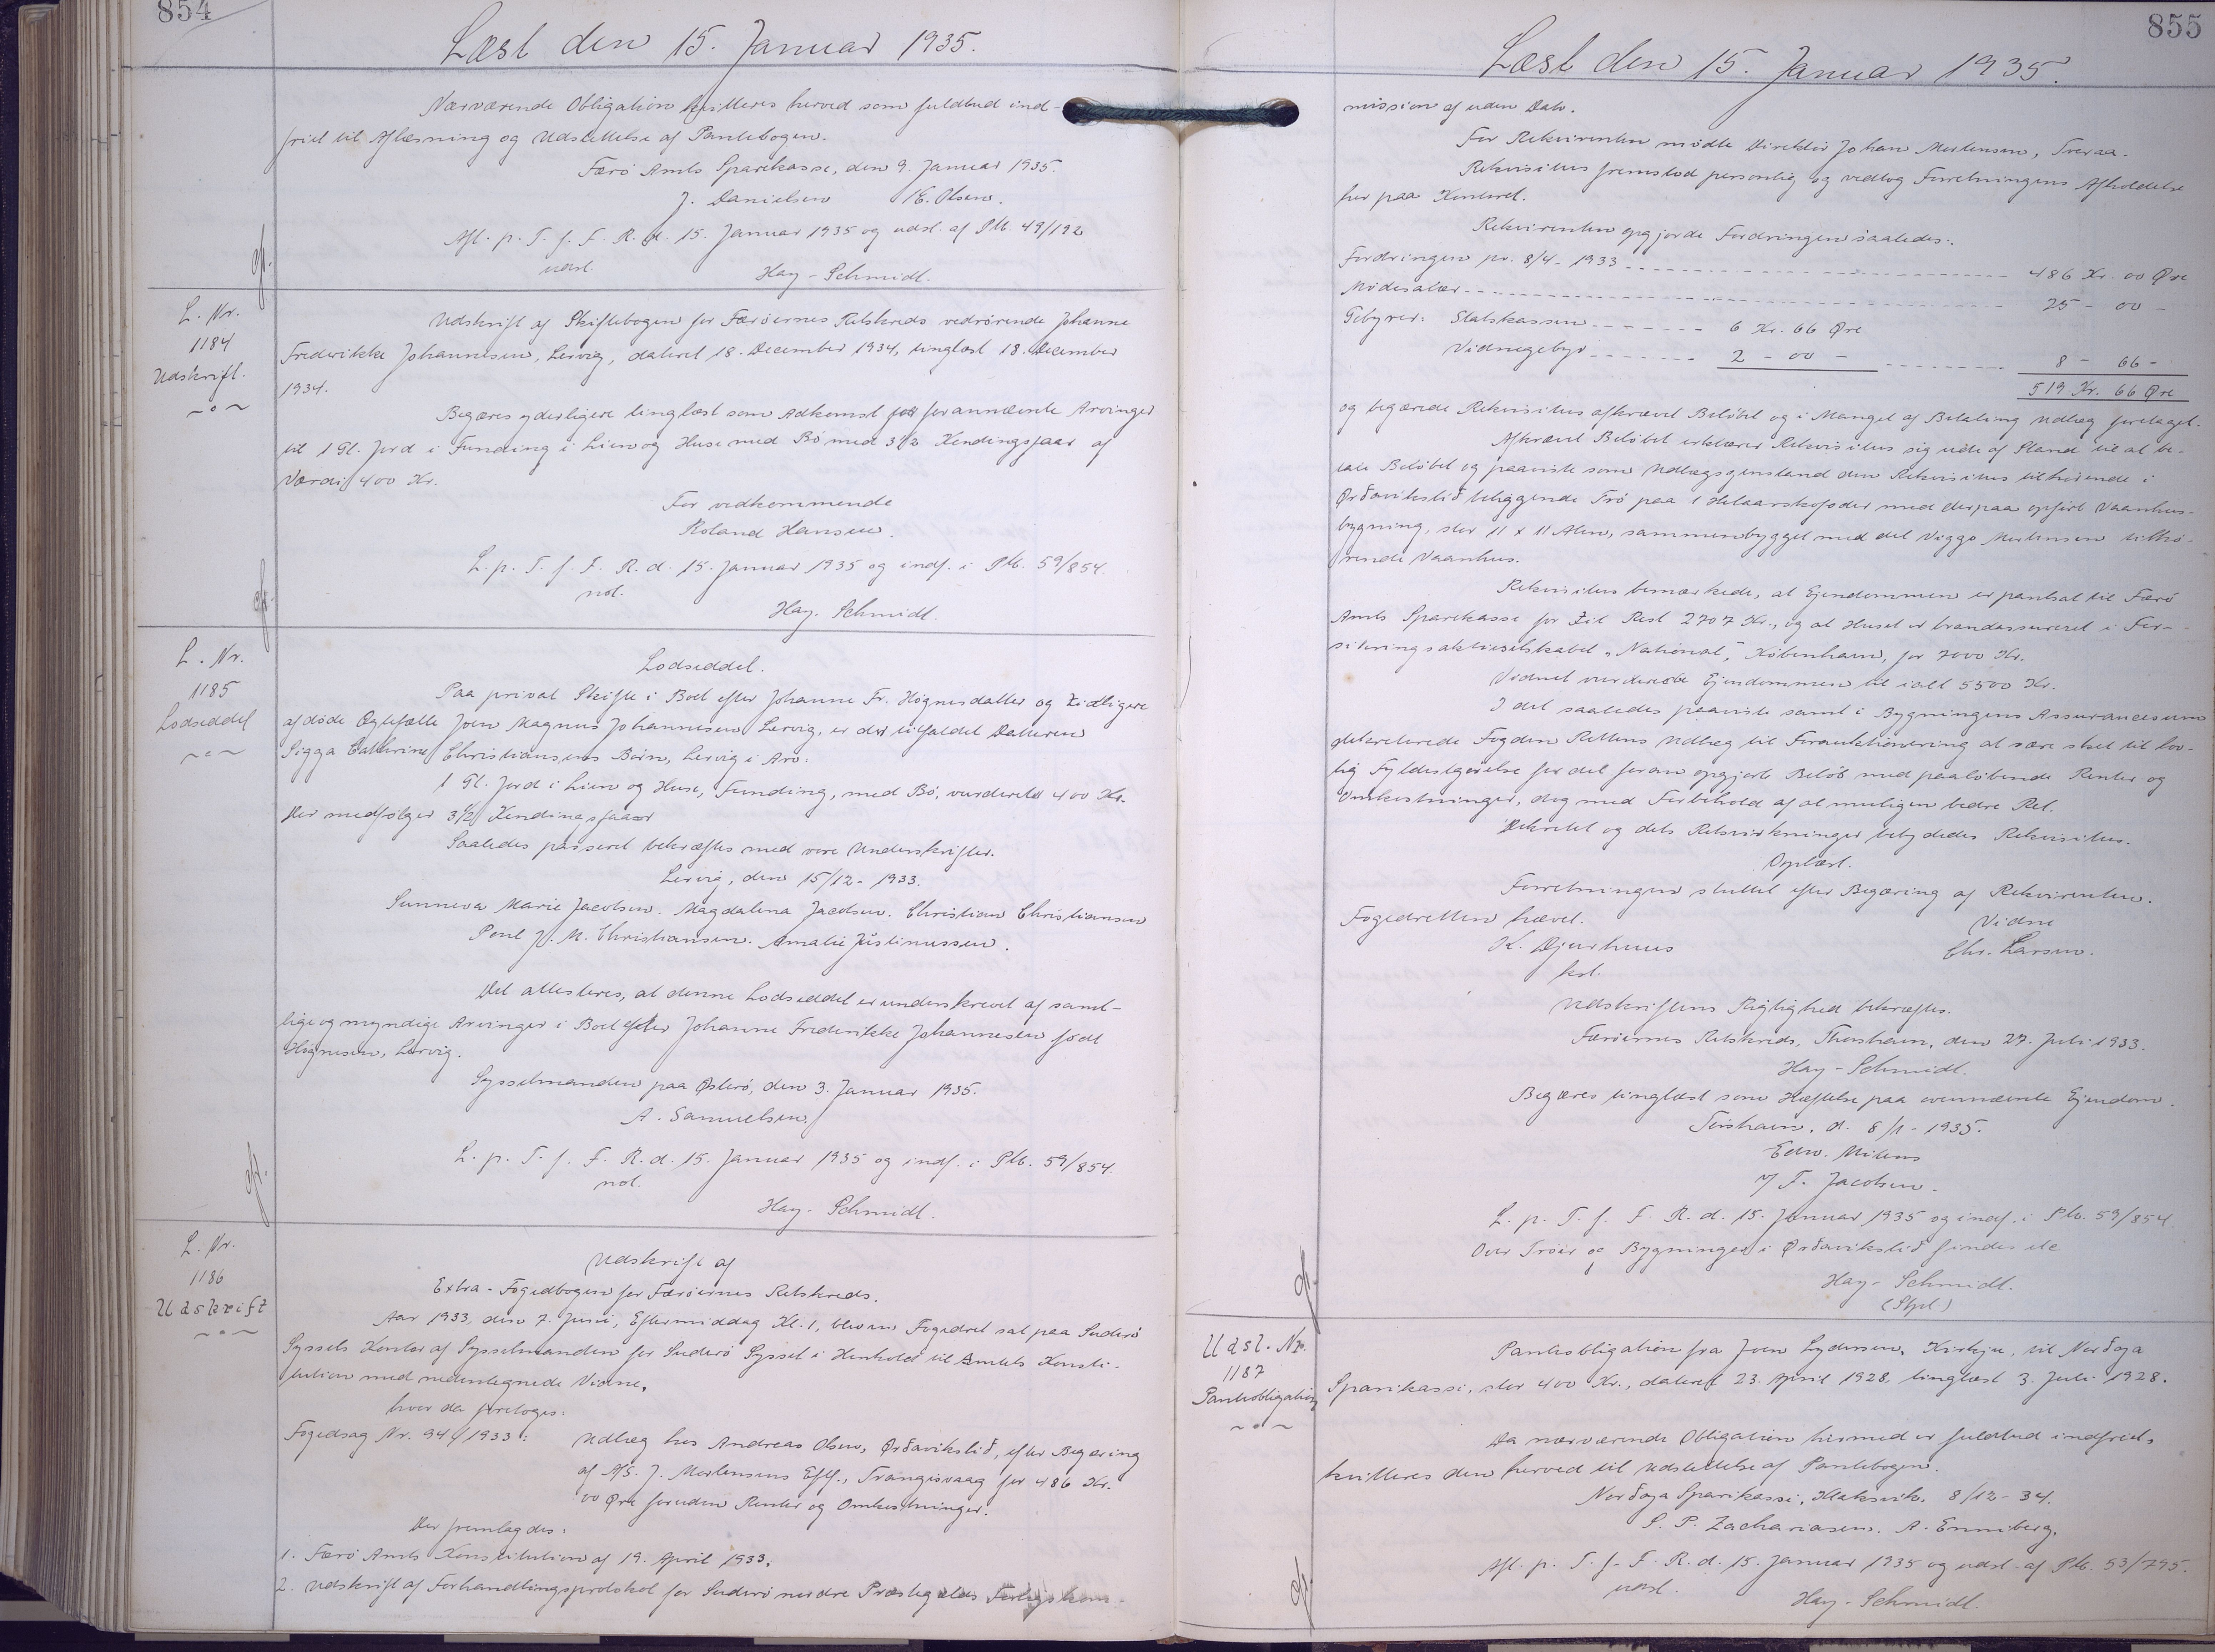 854
Læst den 15. Januar 1935.
Nærværende Obligation kvitteres herved som fuldtud ind-
friet til Aflæsning og Udslettelse af Pantebogen.
Færø Amts Sparekasse, den 9. Januar 1935.
J. Danielsen /E. Olsen.
Afl. p. T. f. F. R. d. 15. Januar 1935 og udsl. af Ptb. 49/192
udsl.
Hay-Schmidt.
L. Nr.
1184
Udskrift.
Udskrift af Skiftebogen for Færøernes Retskreds vedrørende Johanne
Frederikke Johannesen, Lervig, dateret 18. December 1934, tinglæst 18. December
1934.
Begæres yderligere tinglæst som Adkomst for forannævnte Arvinger
til 1 Gl. Jord i Funding i Lien og Huse med Bø med 3 1/2 Kendingsfaar af
Værdi 400 Kr.
For vedkommende
Roland Hansen.
L. p. T. f. F. R. d. 15. Januar 1935 og indf. i Ptb. 59/854.
not.
Hay-Schmidt.
L. Nr.
1185
Lodseddel
Lodseddel.
Paa privat Skifte i Boet efter Johanne Fr. Høgnesdatter og tidligere
afdøde Ægtefælle Joen Magnus Johannesen Lervig, er der tilfaldet Datteren
Sigga Cathrine Christiansens Børn, Lervig i Arv:
1 Gl. Jord i Lien og Huse, Funding, med Bø, vurderet 400 Kr.
Der medfølger 3 1/2 Kendingsfaar
Saaledes passeret bekræftes med vore Underskrifter.
Lervig, den 15/12-1933.
Sunneva Marie Jacobsen. Magdalena Jacobsen. Christian Christiansen
Poul J. M. Christiansen. Amalie Justinussen.
Det attesteres, at denne Lodseddel er underskrevet af samt-
lige og myndige Arvinger i Boet efter Johanne Frederikke Johannesen født
Høgnesen, Lervig.
Sysselmanden paa Østerø, den 3. Januar 1935.
A. Samuelsen.
L. p. T. f. F. R. d. 15. Januar 1935 og indf. i Ptb. 59/854.
not.
Hay-Schmidt.
L. Nr.
1186
Udskrift
Udskrift af
Extra-Fogedbogen for Færøernes Retskreds.
Aar 1933, den 7. Juni, Eftermiddag Kl. 1, blev en Fogedret sat paa Suderø
Syssels Kontor af Sysselmanden for Suderø Syssel i Henhold til Amtets Konsti-
tution med nedentegnede Vidne,
hvor da foretoges:
Fogedsag Nr. 94/1933: Udlæg hos Andreas Olsen, Ørðavikslið, efter Begæring
af A/S. J. Mortensens Eftf., Trangisvaag for 486 Kr.
00 Øre foruden Renter og Omkostninger.
Der fremlagdes:
1. Færø Amts Konstitution af 19. April 1933.
2. Udskrift af Forhandlingsprotokol for Suderø nordre Præstegælds Forligskom-
855
Læst den 15. Januar 1935.
mission af uden Dato.
For Rekvirenten mødte Direktør Johan Mortensen, Tveraa.
Rekvisitus fremstod personlig og vedtog Forretningens Afholdelse
her paa Kontoret.
Rekvirenten opgjorde Fordringen saaledes:
Fordringen pr. 8/4-1933 486 Kr. 00 Øre
Mødesalær 25 - 00 -
Gebyrer: Statskassen 6 Kr. 66 Øre
Vidnegebyr 2 - 00 - 8 - 66 -
519 Kr. 66 Øre
og begærede Rekvisitus afkrævet Beløbet og i Mangel af Betaling Udlæg foretaget.
Afkrævet Beløbet erklærer Rekvisitus sig ude af Stand til at be-
tale Beløbet og paaviste som Udlægsgenstand den Rekvisitus tilhørende i
Ørðavikslið beliggende Trø paa 1 Helaarskofoder med derpaa opført Vaanhus-
bygning, stor 11 x 11 Alen, sammenbygget med det Viggo Mortensen tilhø-
rende Vaanhus.
Rekvisitus bemærkede, at Ejendommen er pantsat til Færø
Amts Sparekasse for Zit Rest 2707 Kr., og at Huset er brandassureret i For-
sikringsaktieselskabet "National", København, for 7000 Kr.
Vidnet vurderede Ejendommen til ialt 5500 Kr.
I det saaledes paaviste samt i Bygningens Assurancesum
dekreterede Fogden Rettens Udlæg til Forauktionering at være sket til lov-
lig Fyldestgørelse for det foran opgjorte Beløb med paaløbende Renter og
Omkostninger, dog med Forbehold af al muligen bedre Ret.
Dekretet og dets Retsvirkninger betydedes Rekvisitus.
Oplæst.
Forretningen sluttet efter Begæring af Rekvirenten.
Fogedretten hævet.
Vidne
K. Djurhuus Chr. Larsen.
kst.
Udskriftens Rigtighed bekræftes.
Færøernes Retskreds, Thorshavn, den 27. Juli 1933.
Hay-Schmidt.
Begæres tinglæst som Hæftelse paa ovennævnte Ejendom.
Torshavn, d. 8/1-1935.
Edw. Mitens
v/ F. Jacobsen.
L. p. T. f. F. R. d. 15. Januar 1935 og indf. i Ptb. 59/854.
Over Trøer og Bygninger i Ørðavikslið findes ikke
Hay-Schmidt.
(Stpl)
Udsl. Nr.
1187
Panteobligation
Panteobligation fra Joen Lydersen, Kirkju, til Norðoya
Sparikassi, stor 400 Kr., dateret 23. April 1928, tinglæst 3. Juli 1928.
Da nærværende Obligation hermed er fuldtud indfriet,
kvitteres den herved til Udslettelse af Pantebogen.
Norðoya Sparikassi, Klaksvik. 8/12-34.
S. P. Zachariasen. A. Enniberg.
Afl. p. T. f. F. R. d. 15. Januar 1935 og udsl. af Ptb. 53/795.
udsl.
Hay-Schmidt.